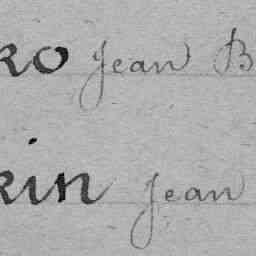 ko Jean B
kin Jean